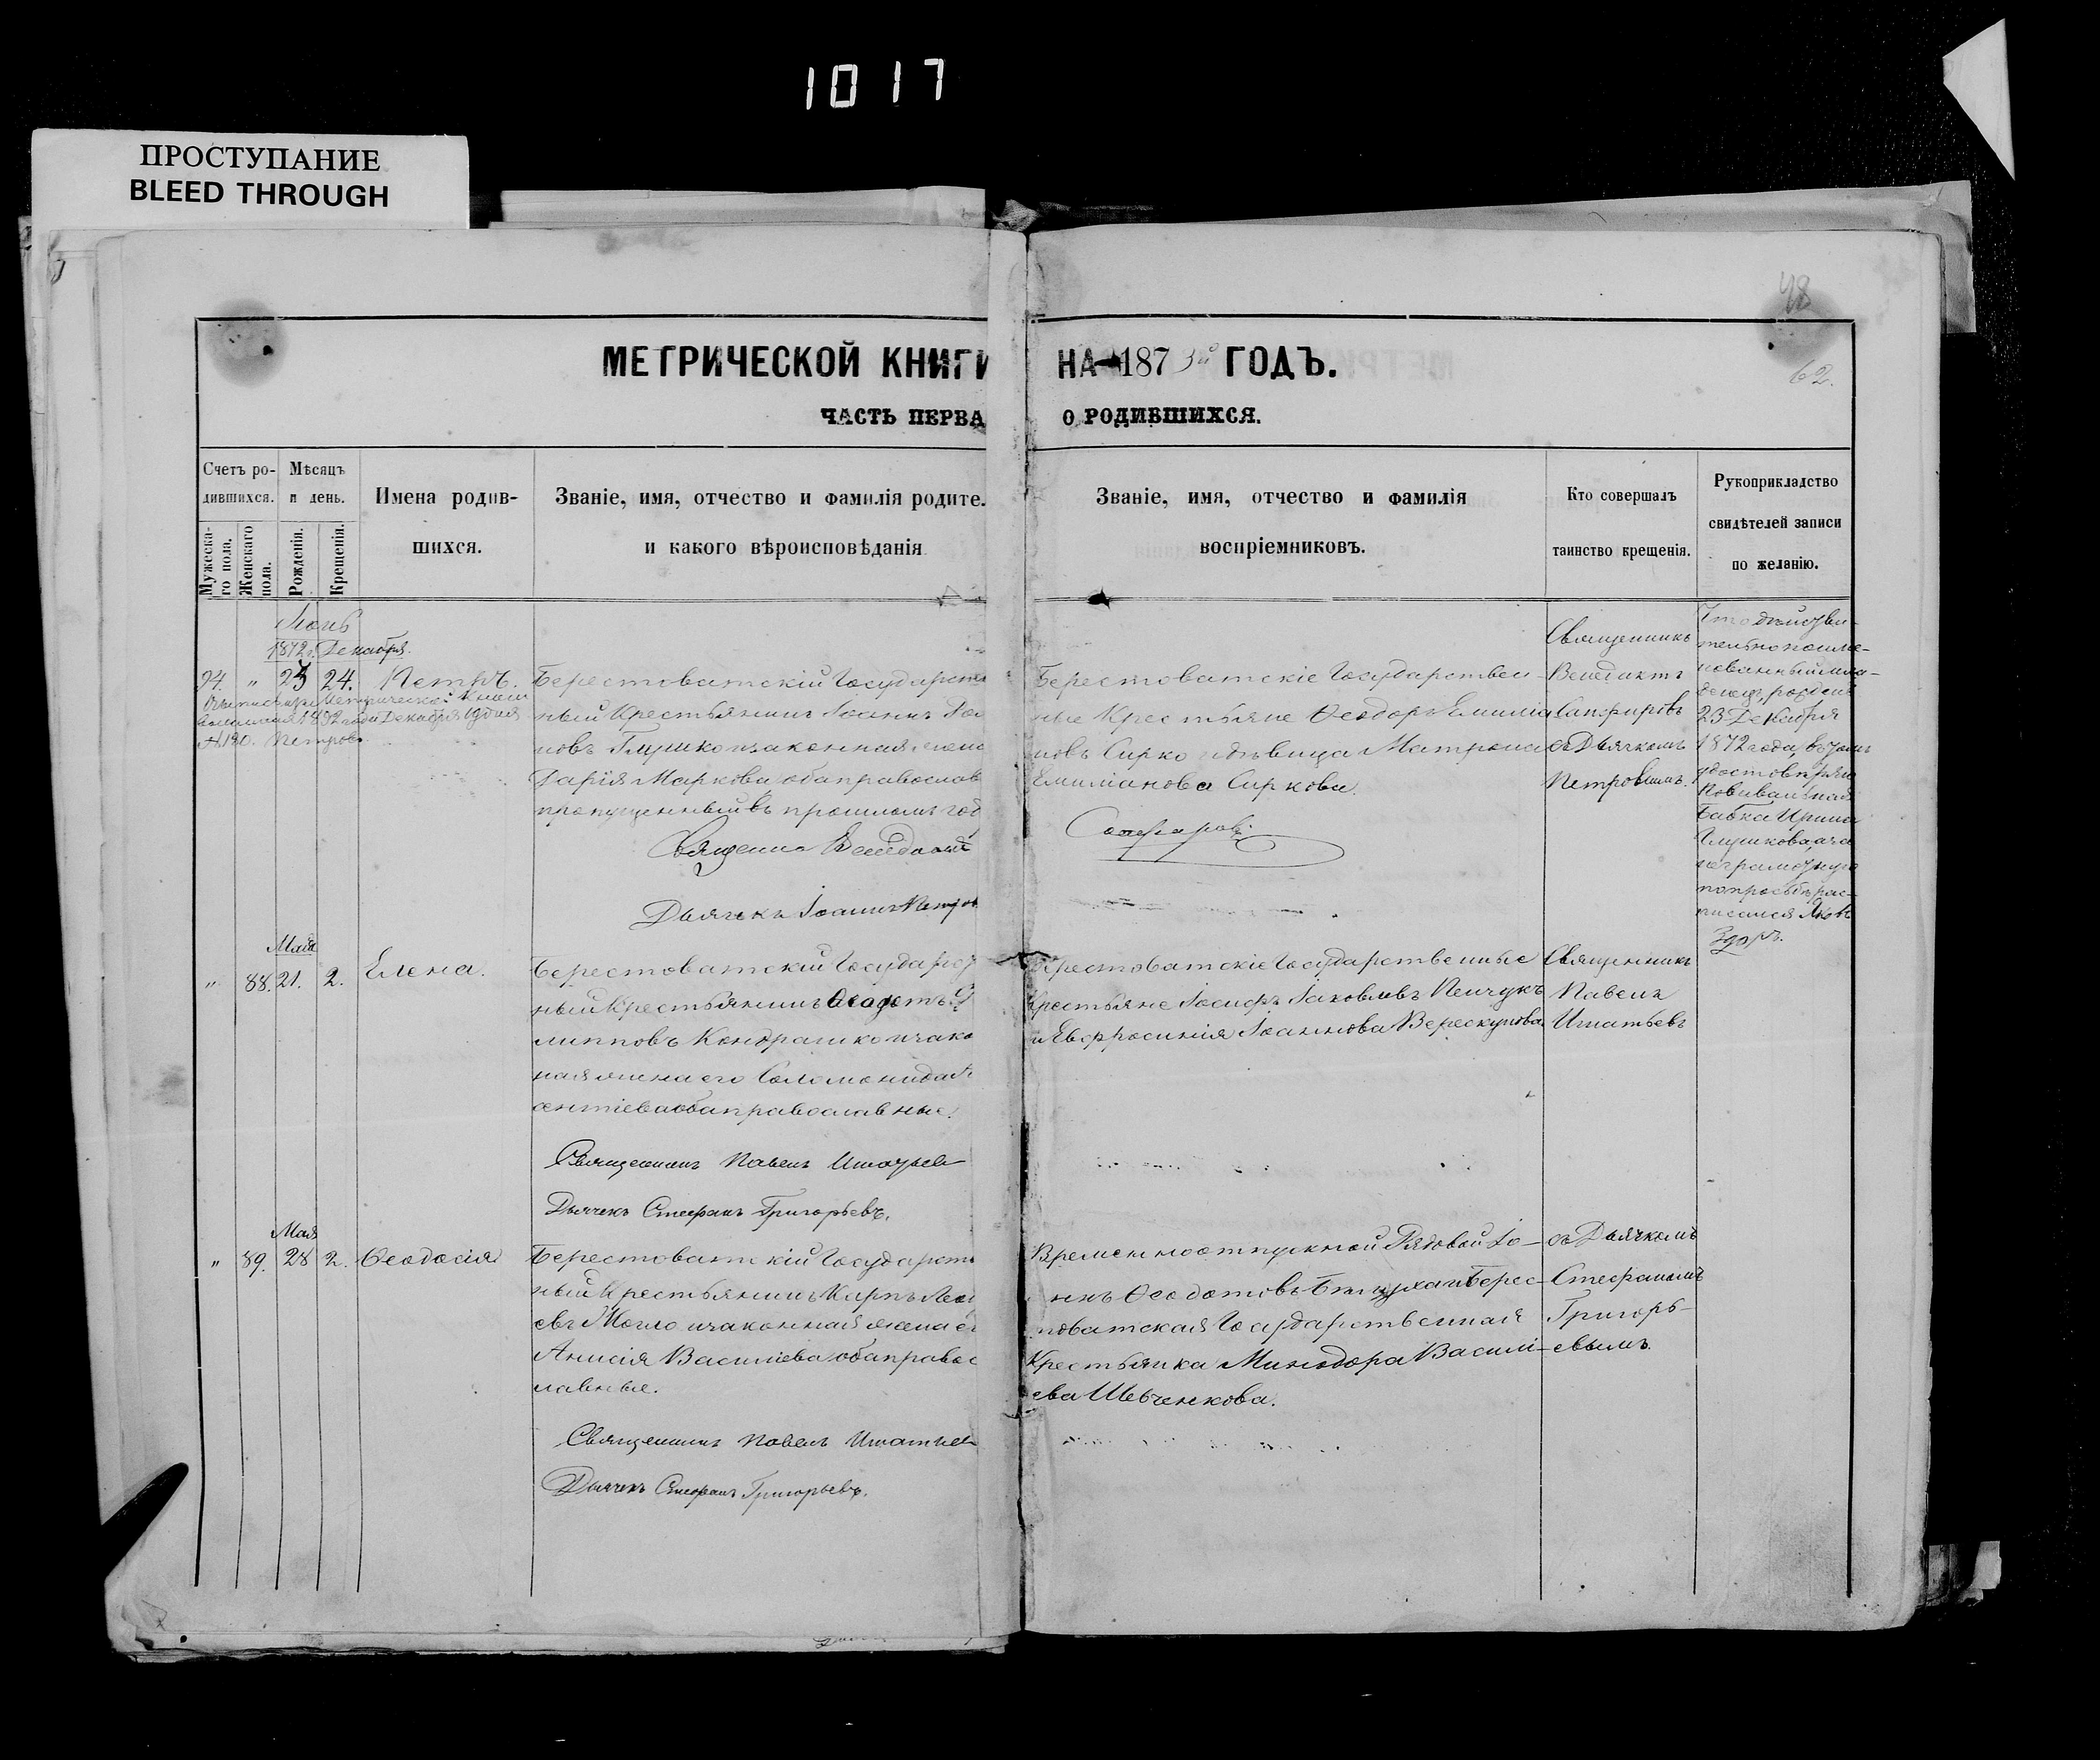 1017
ПРОСТУПАНИЕ
BLEED THROUGH
48
МЕТРИЧЕСКОЙ КНИГИ НА 1873й ГОДЪ.
62.
ЧАСТЬ ПЕРВА О РОДИВШИХСЯ.
Счетъ ро-
дившихся.
Мужеска-
го пола.
Женскаго
пола.
Мѣсяцъ
и день.
Рожденія.
Крещенія.
Имена родив-
шихся.
Званіе, имя, отчество и фамилія родите.
и какого вѣроисповѣданія
Званіе, имя, отчество и фамилія
воспріемниковъ.
Кто совершалъ
таинство крещенія.
Рукоприкладство
свидѣтелей записи
по желанію.
1872г. Декабря.
94. " 23 24. Петръ.
А.120. Петровъ
Берестоватскій Государств
ный Крестьянинъ Іоаннъ
новъ Глушко и законная жена
Дарія Маркова оба православ
пропущенный въ прошломъ год
Священно Венедиктъ
Дьячекъ Іоаннъ Петров
Берестоватскіе Государствен-
ные Крестьяне Ѳеодоръ Емиліа
новъ Сирко и дѣвица Матрона
Емиліанова Сиркова.
Сапфировъ
Священникъ
Венедиктъ
Сапфировъ
съ Дьячкомъ
Петровымъ.
Что дѣйстви-
тельно поиме-
нованный мла-
денецъ рожденъ
23 Декабря
1872 года, въ томъ
удостовѣряю
Повивальная
Бабка Ирина
Глушкова, а за
неграмотную
по просьбѣ рас-
писался Яковъ
Здоръ.
Мая
" 88. 21. 2. Елена.
Берестоватскій Государст
ный Крестьянинъ Ѳеодотъ Фи
липповъ Кондрашко и зако
ная жена его Соломонида
ентіева оба православные.
Священникъ Павелъ Игнатьев
Дьячекъ Стефанъ Григорьевъ.
Берестоватскіе Государственные
Крестьяне Іосифъ Іаковлевъ Пенчукъ
и Евфросинія Іоаннова Верескунова
Священникъ
Павелъ
Игнатьевъ
Мая
" 89. 28 2. Ѳеодосія
Берестоватскій Государств
ный Крестьянинъ Карпъ
евъ Могло и законная жена ег
Анисія Василіева оба правос
лавные.
Священникъ Павелъ Игнатьев
Дьячекъ Стефанъ Григорьевъ.
Временноотпускной Рядовой Іо-
нъ Ѳеодотовъ Берес-
товатская Государственная
Крестьянка Минодора Васили-
ева Шевченкова.
съ Дьячкомъ
Стефаномъ
Григорь-
евымъ.